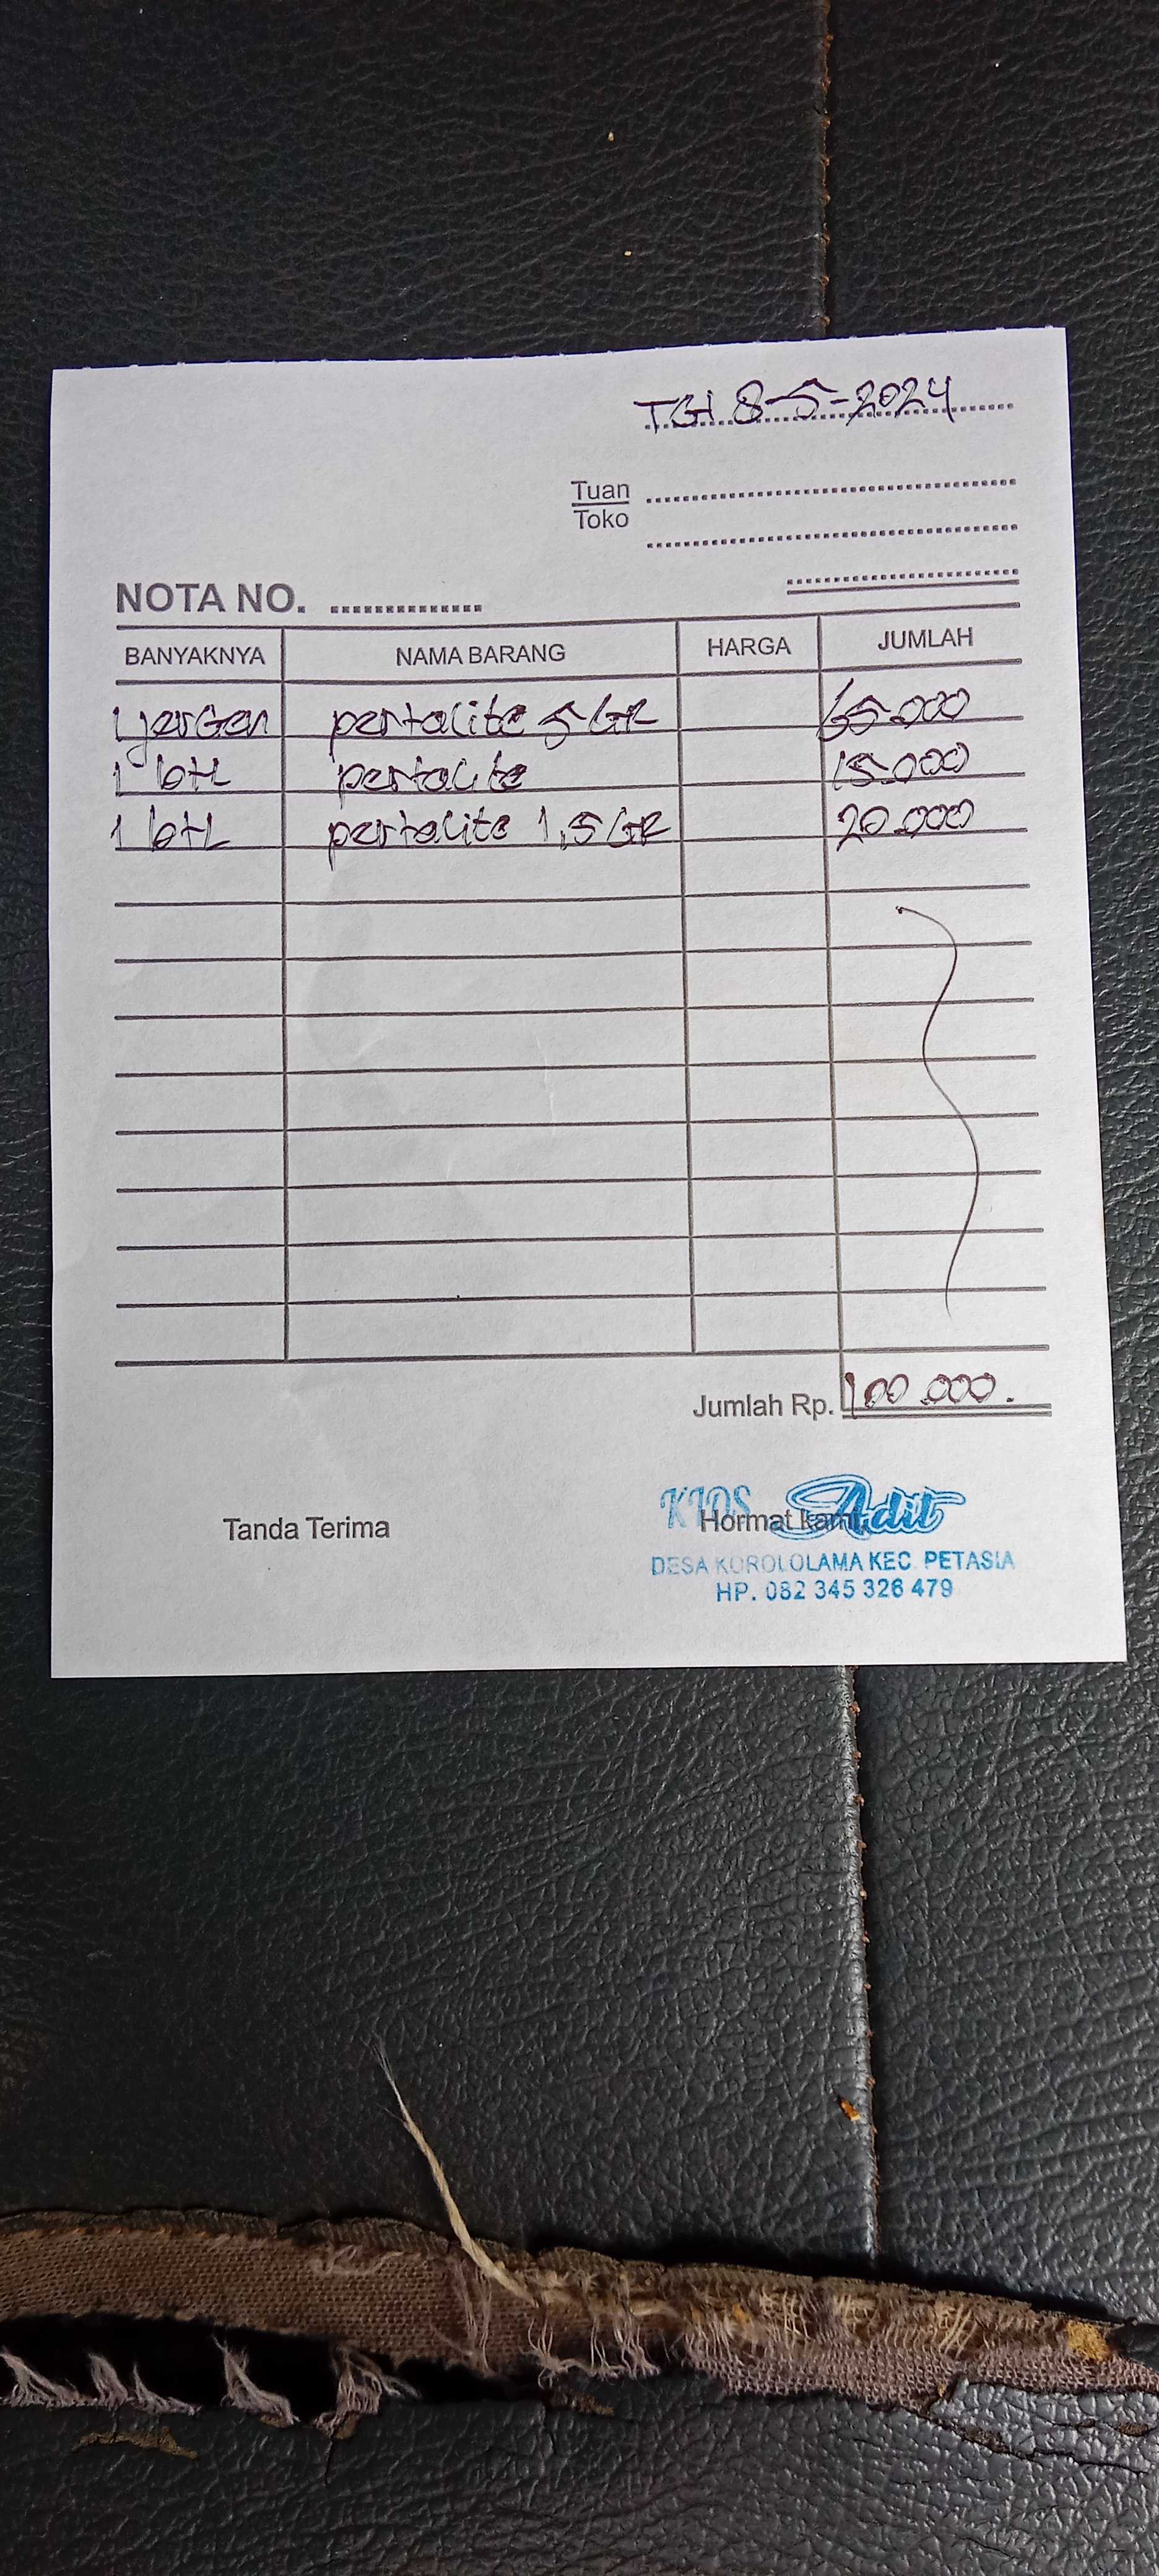 TGl 8-5-2024
Tuan
Toko
NOTA NO.
BANYAKNYA NAMA BARANG HARGA JUMLAH
1 jerGen pertalite 5 GR 65.000
1 btL pertalite 15.000
1 btL pertalite 1,5 GR 20.000
Jumlah Rp. 100.000.
Tanda Terima Hormat kami,
KIOS Adit
DESA KOROLOLAMA KEC. PETASIA
HP. 082 345 326 479